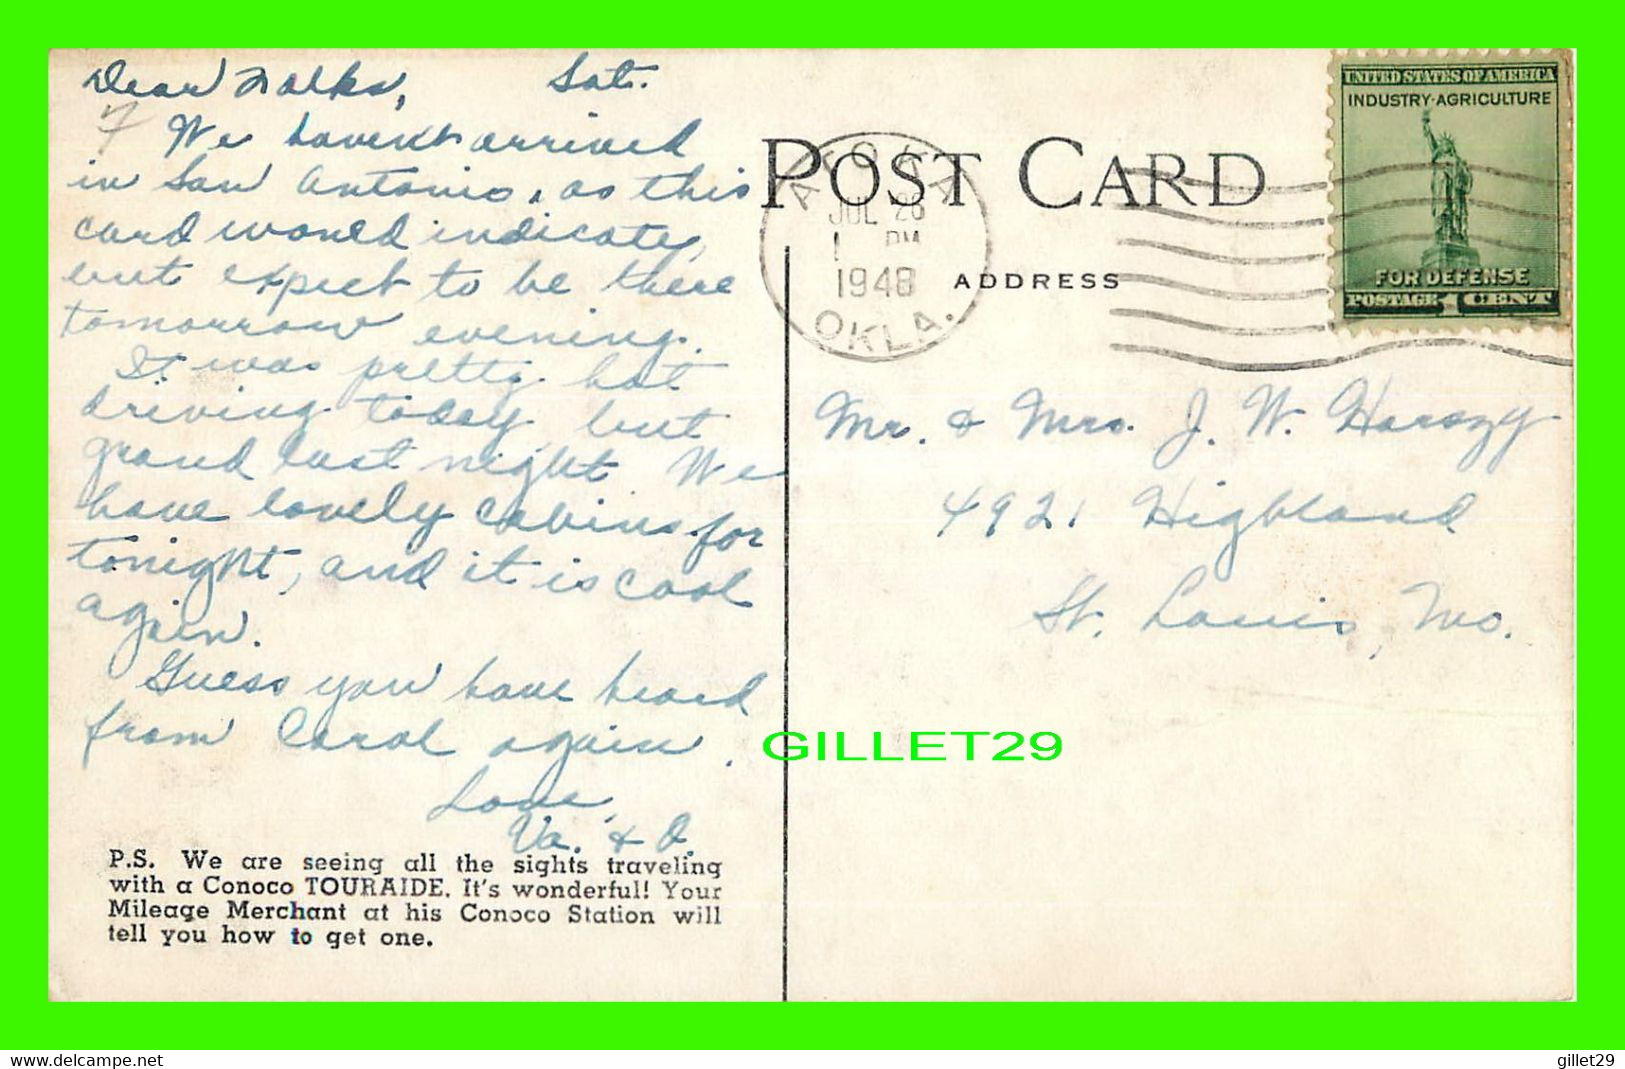 Dear Folks, Sat.
We haven't arrived
in San Antonio, as this
card would indicate,
but expect to be there
tomorrow evening.
It was pretty hot
driving today, but
grand last night We
have lovely cabins for
tonight, and it is cool
again.
Guess you have heard
from Carol again.
Love,
Va. & O.
P.S. We are seeing all the sights traveling
with a Conoco TOURAIDE. It's wonderful! Your
Mileage Merchant at his Conoco Station will
tell you how to get one.
POST CARD
ATOKA
JUL 26
1 PM
1948
OKLA.
ADDRESS
UNITED STATES OF AMERICA
INDUSTRY-AGRICULTURE
FOR DEFENSE
POSTAGE 1 CENT
Mr. & Mrs. J. W. Harszy
4921 Highland
St. Louis, Mo.
GILLET29
www.delcampe.net
gillet29